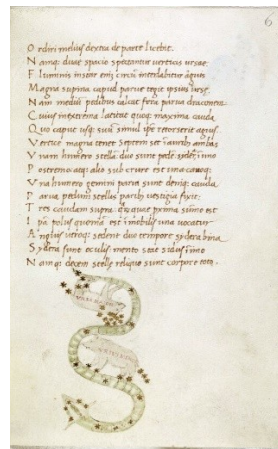 6
O rdiri melius dextra de parte licebit.
N amq; duae spacio spectantur verticis ursae
F luminis instar enĩ circũ interlabitur aguis
M agna supina caput parvae tegit ipsius ursę
N am mediã pedibus calcat fera parva draconem
C uius in extrema lateat quoq; maxima cauda
Q uo caput usq; suũ simul ipse retorserit agius
V ertice magna tenet septem set iamibs ambas
V nam humero stellã duo sunt pede sidera imo
P ostremo atq; alio sub crure est una canoq;
V na humero gemini parva sunt deniq; cauda
P arva pedum stellis paribs vestigia fixit
T res caudam supra quaeque prima sũmo est
I pã polus quoniã est imobilis una vocatur
A nguis utroq; sedent duo tempore sydera bina
S ydera sunt oculis mento stat sidus imo
N amq; decem stellę reliquo sunt corpore toto.